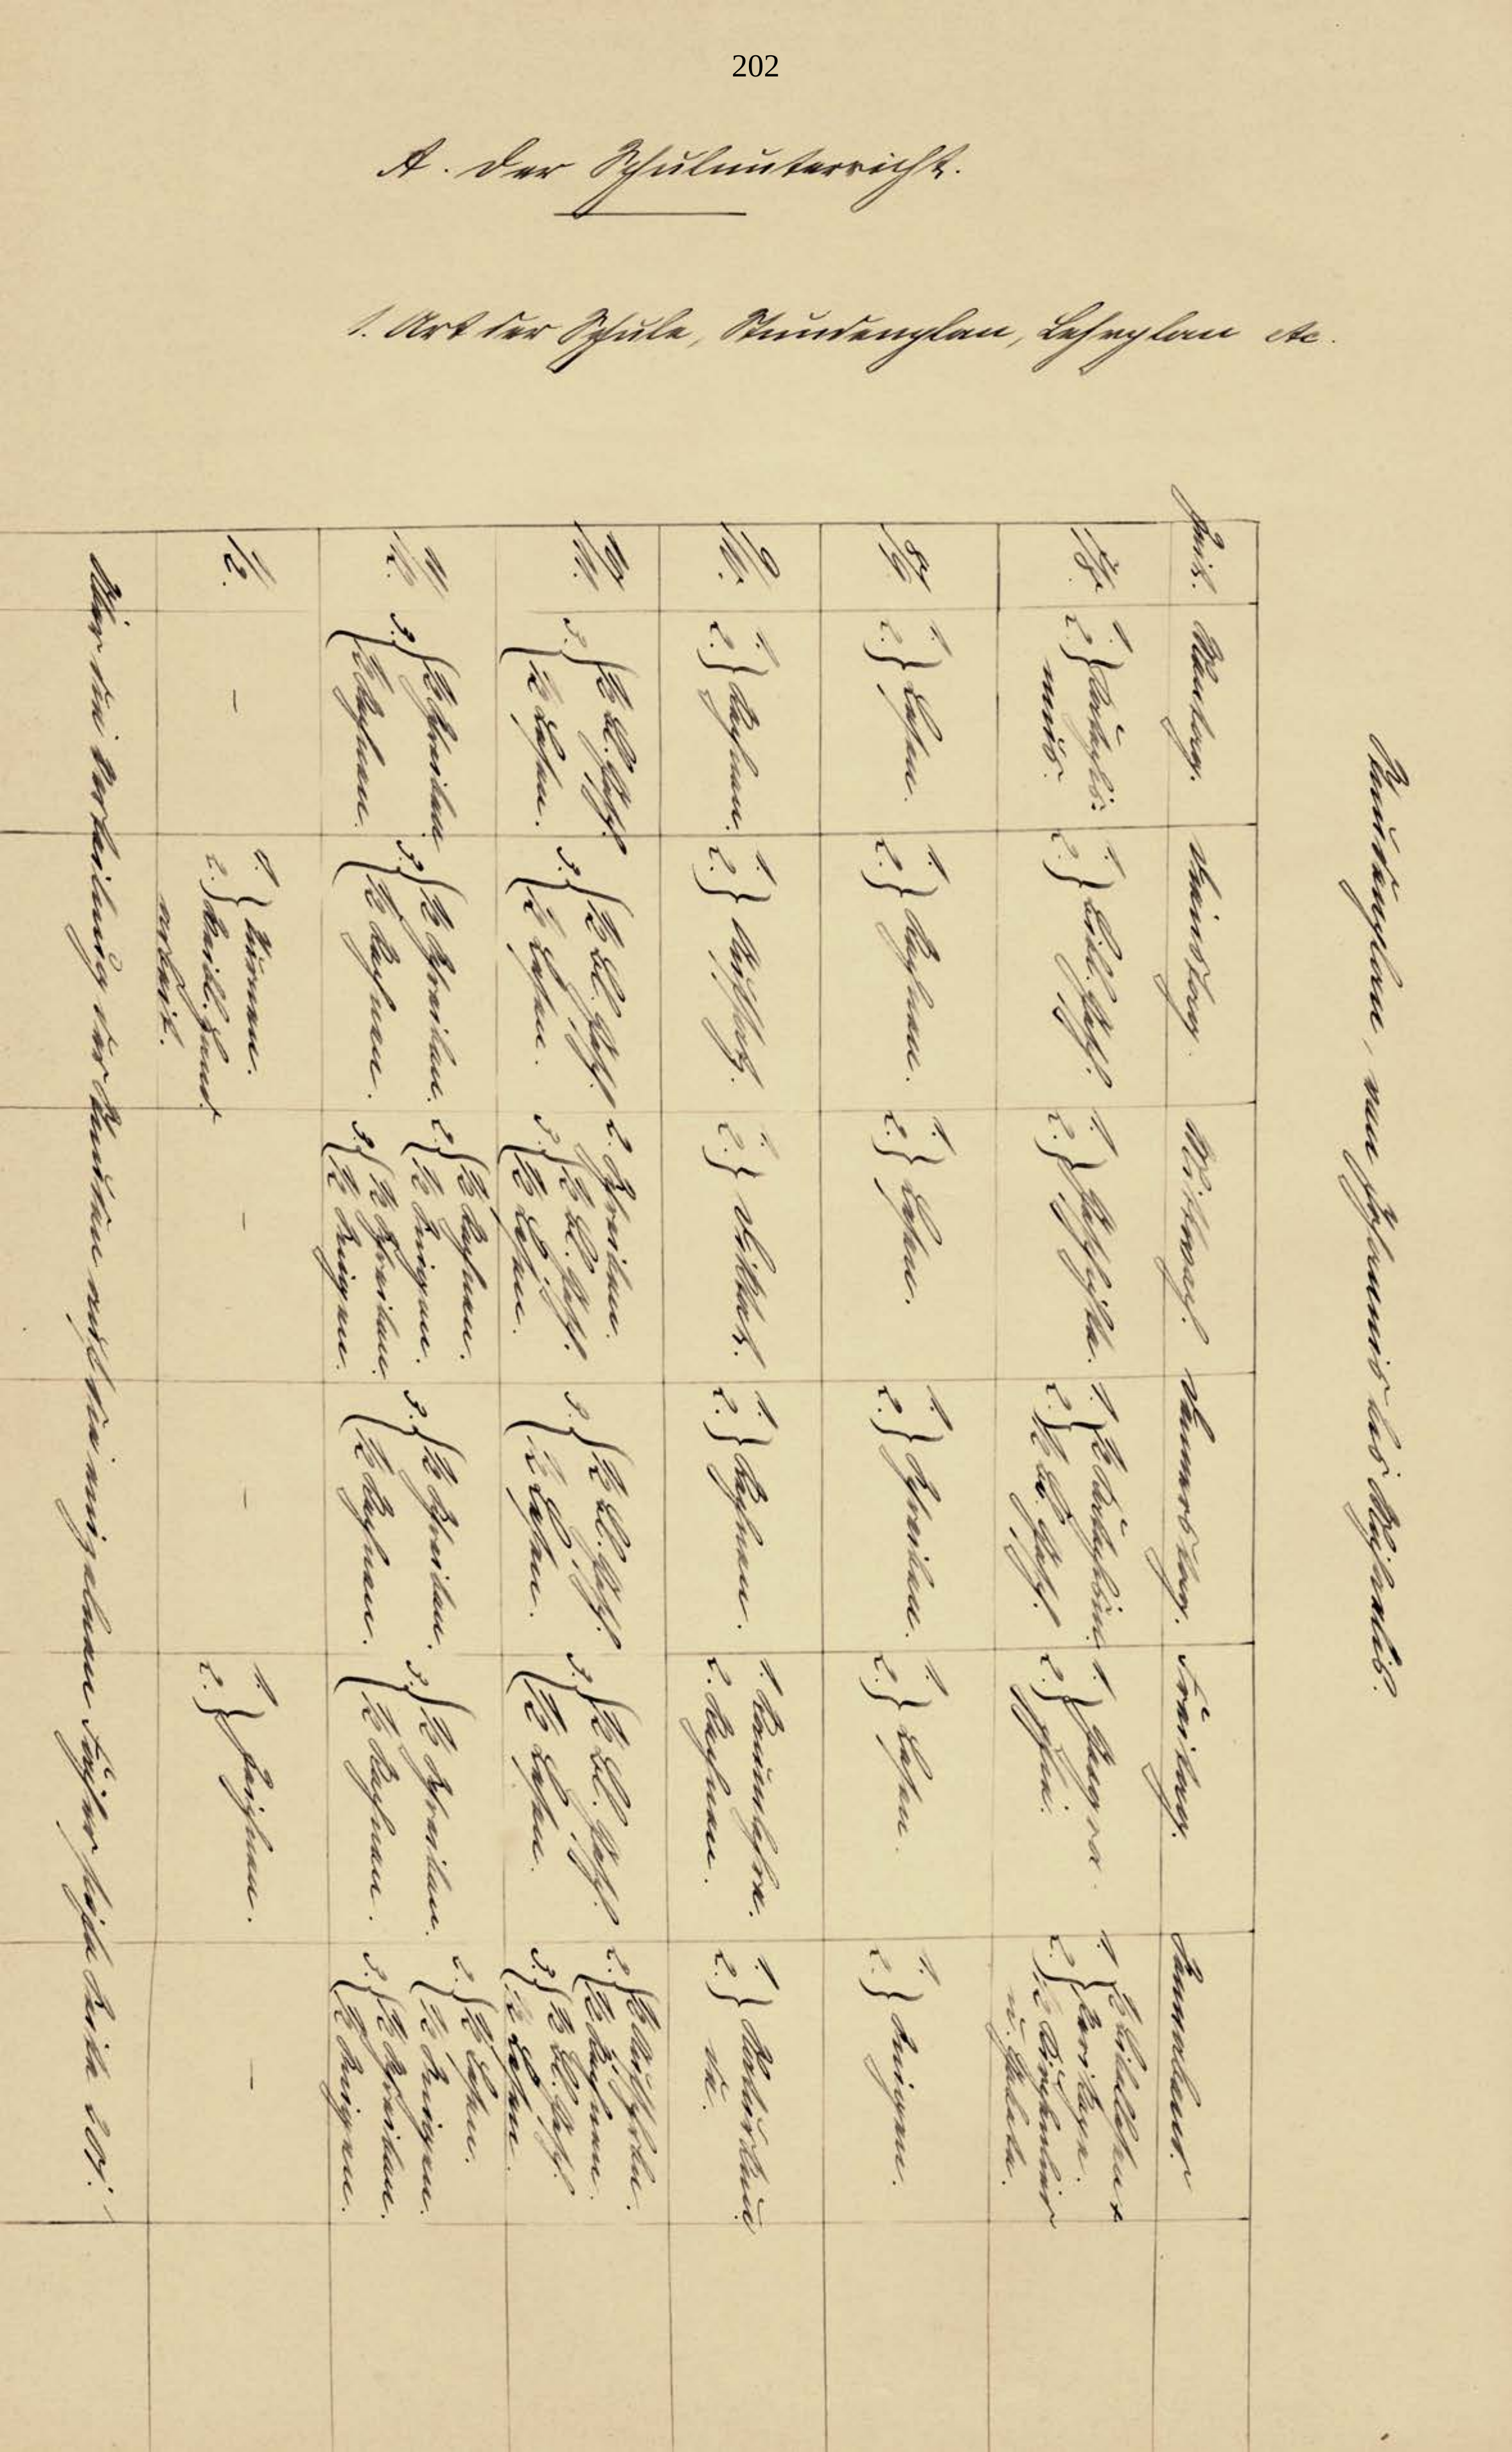 202
A. Der Schulunterricht.
1. Art der Schule, Stundenplan, Lehrplan etc.
Stundenplan, von Johannis bis Michaelis.
Zeit. Montag. Dienstag. Mittwoch. Donnerstag. Freitag. Sonnabend.
7/8.
1. 2. } Katechis-
mus.
1. 2. } Bibl. Gesch.
1. 2. } Geschichte.
1. 2. } Katechismus
Bl. Gesch.
1. 2. } Geogra-
phie.
1. 2. } Bibellesen
Perikope.
u.
8/9
1. 2. } Lesen.
1. 2. } Rechnen.
1. 2. } Lesen.
1. 2. } Schreiben.
1. 2. } Lesen.
1. 2. } Singen.
9/10.
1. 2. } Rechnen.
1. 2. } Aufsatz.
1. 2. } Diktat.
1. 2. } Rechnen.
1. Raumlehre.
2. Rechnen.
1. 2. } Naturkun-
de.
10/11.
3. { ½ Bl. Gesch.
½ Lesen.
3. { ½ Bl. Gesch.
½ Lesen.
2. Schreiben.
3. { ½ Bl. Gesch.
½ Lesen.
3. { ½ Bl. Gesch.
½ Lesen.
3. { ½ Bl. Gesch.
½ Lesen.
2. {
½ Rechnen.
3. { ½ Bl. Gesch.
½ Lesen.
11/12.
3. { ½ Schreiben
½ Rechnen.
3. { ½ Schreiben.
½ Rechnen.
2. { ½ Rechnen.
½ Singen.
3. { ½ Schreiben.
½ Singen.
3. { ½ Schreiben.
½ Rechnen.
3. { ½ Schreiben.
½ Rechnen.
2. { ½ Lesen.
½ Singen.
3. { ½ Schreiben.
½ Singen.
1/2.
–
1. Turnen.
2. } weibl. Hand-
arbeit.
–
–
1. 2. } Zeichnen.
–
Über die Verteilung der Stunden auf die einzelnen Fächer siehe Seite 201.